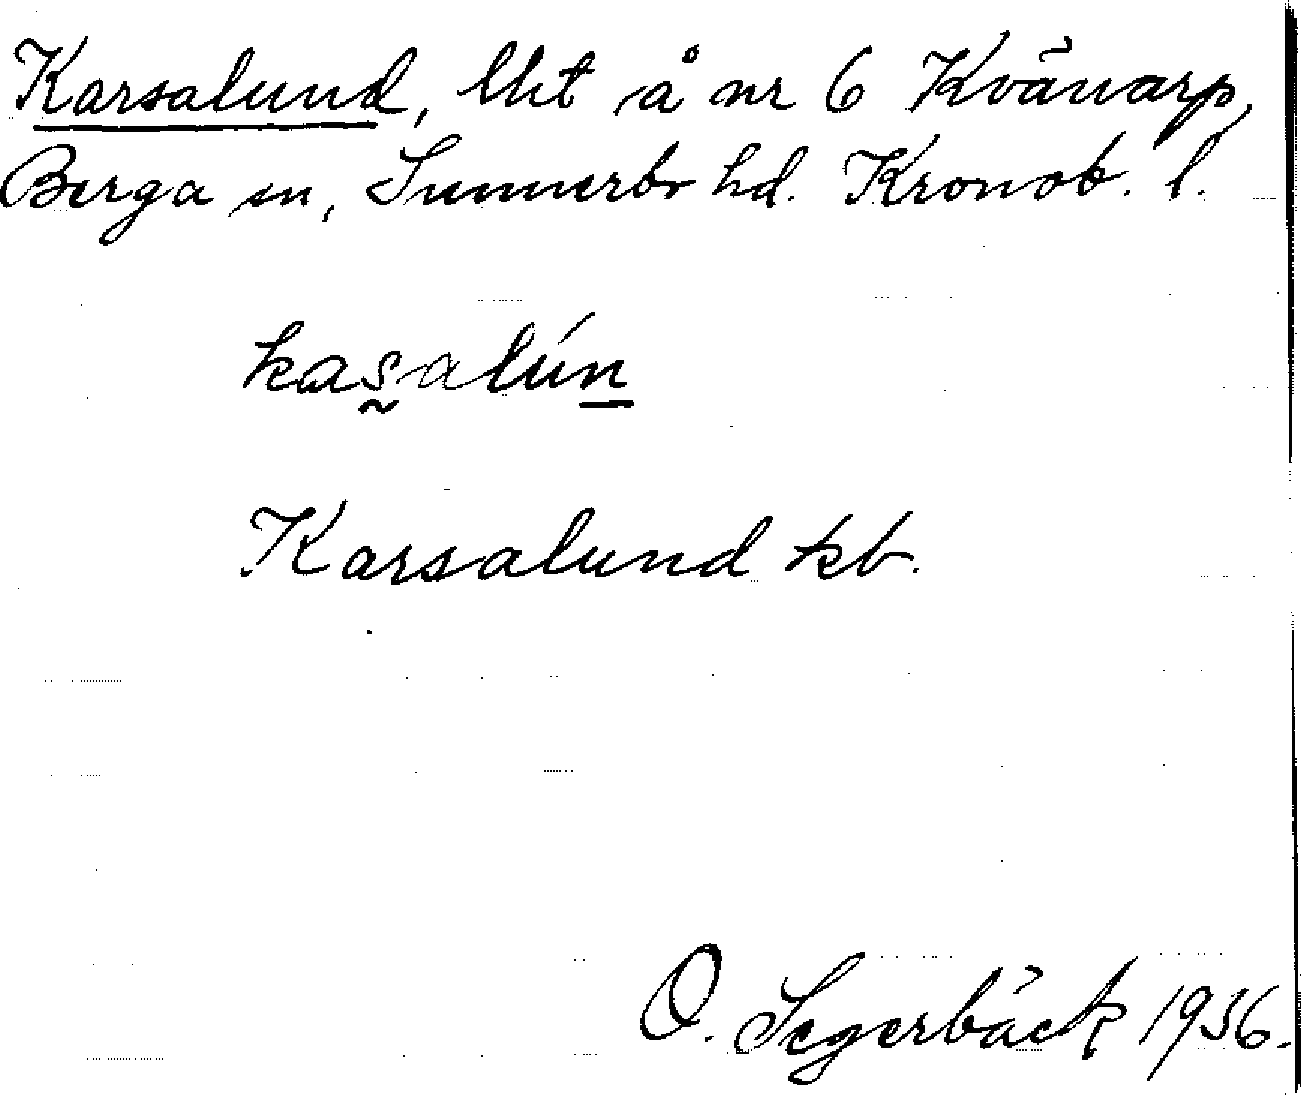 Karsalund, lht å nr 6 Kvänarp,
Berga sn, Sunnerbo hd. Kronob. l.
kas̰alún̲
Karsalund kb.
O. Segerbäck 1936.